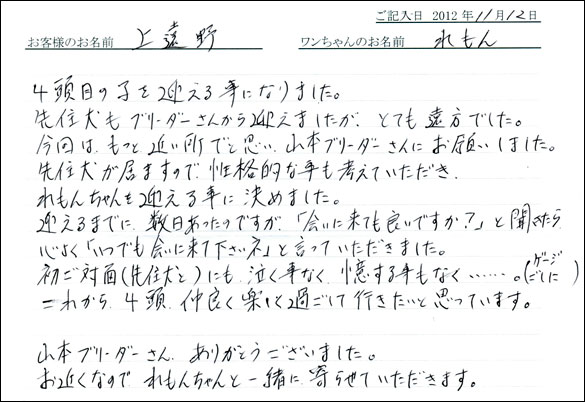 ご記入日 2012年11月12日
お客様のお名前 上遠野 ワンちゃんのお名前 れもん
4頭目の子を迎える事になりました。
先住犬もブリーダーさんから迎えましたが、とても遠方でした。
今回は、もっと近い所でと思い、山本ブリーダーさんにお願いしました。
先住犬が居ますので、性格的な事も考えていただき、
れもんちゃんを迎える事に決めました。
迎えるまでに、数日あったのですが、「会いに来ても良いですか？」と聞きたら
心よく「いつでも会いに来て下さいネ」と言っていただきました。
初ご対面(先住犬と)にも、泣く事なく、憶する事もなく……。(ゲージごしに)
これから、4頭、仲良く楽しく過ごして行きたいと思っています。
山本ブリーダーさん、ありがとうございました。
お近くなので、れもんちゃんと一緒に寄らせていただきます。